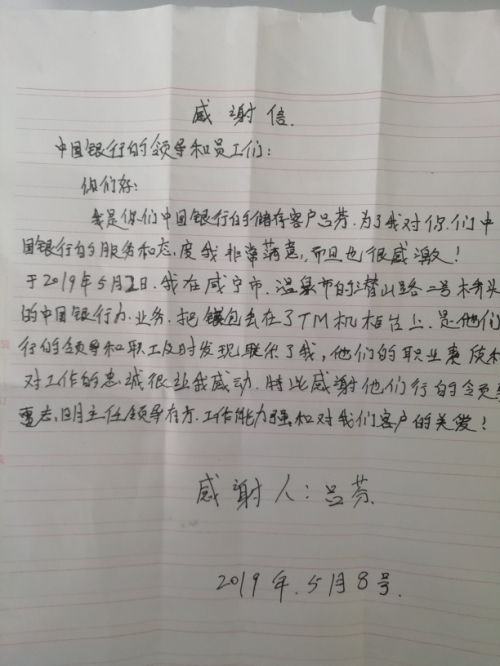 感谢信.
中国银行的领导和员工们:
你们好:
我是你们中国银行的储存客户吕芳.为了我对你.们中
国银行的服务和态,度我非常满意,而且也很感激!
于2019年5月2日.我在咸宁市.温泉市的潜山路二号桥头
的中国银行办.业务.把钱包丢在了TM机柜台上.是他们
行的领导和职工及时发现联络了我,他们的职业责任和
对工作的忠诚很让我感动.特此感谢他们行的领导
主任领导有方.工作能力强和对我们客户的关爱!
感谢人:吕芳.
2019年.5月8号.